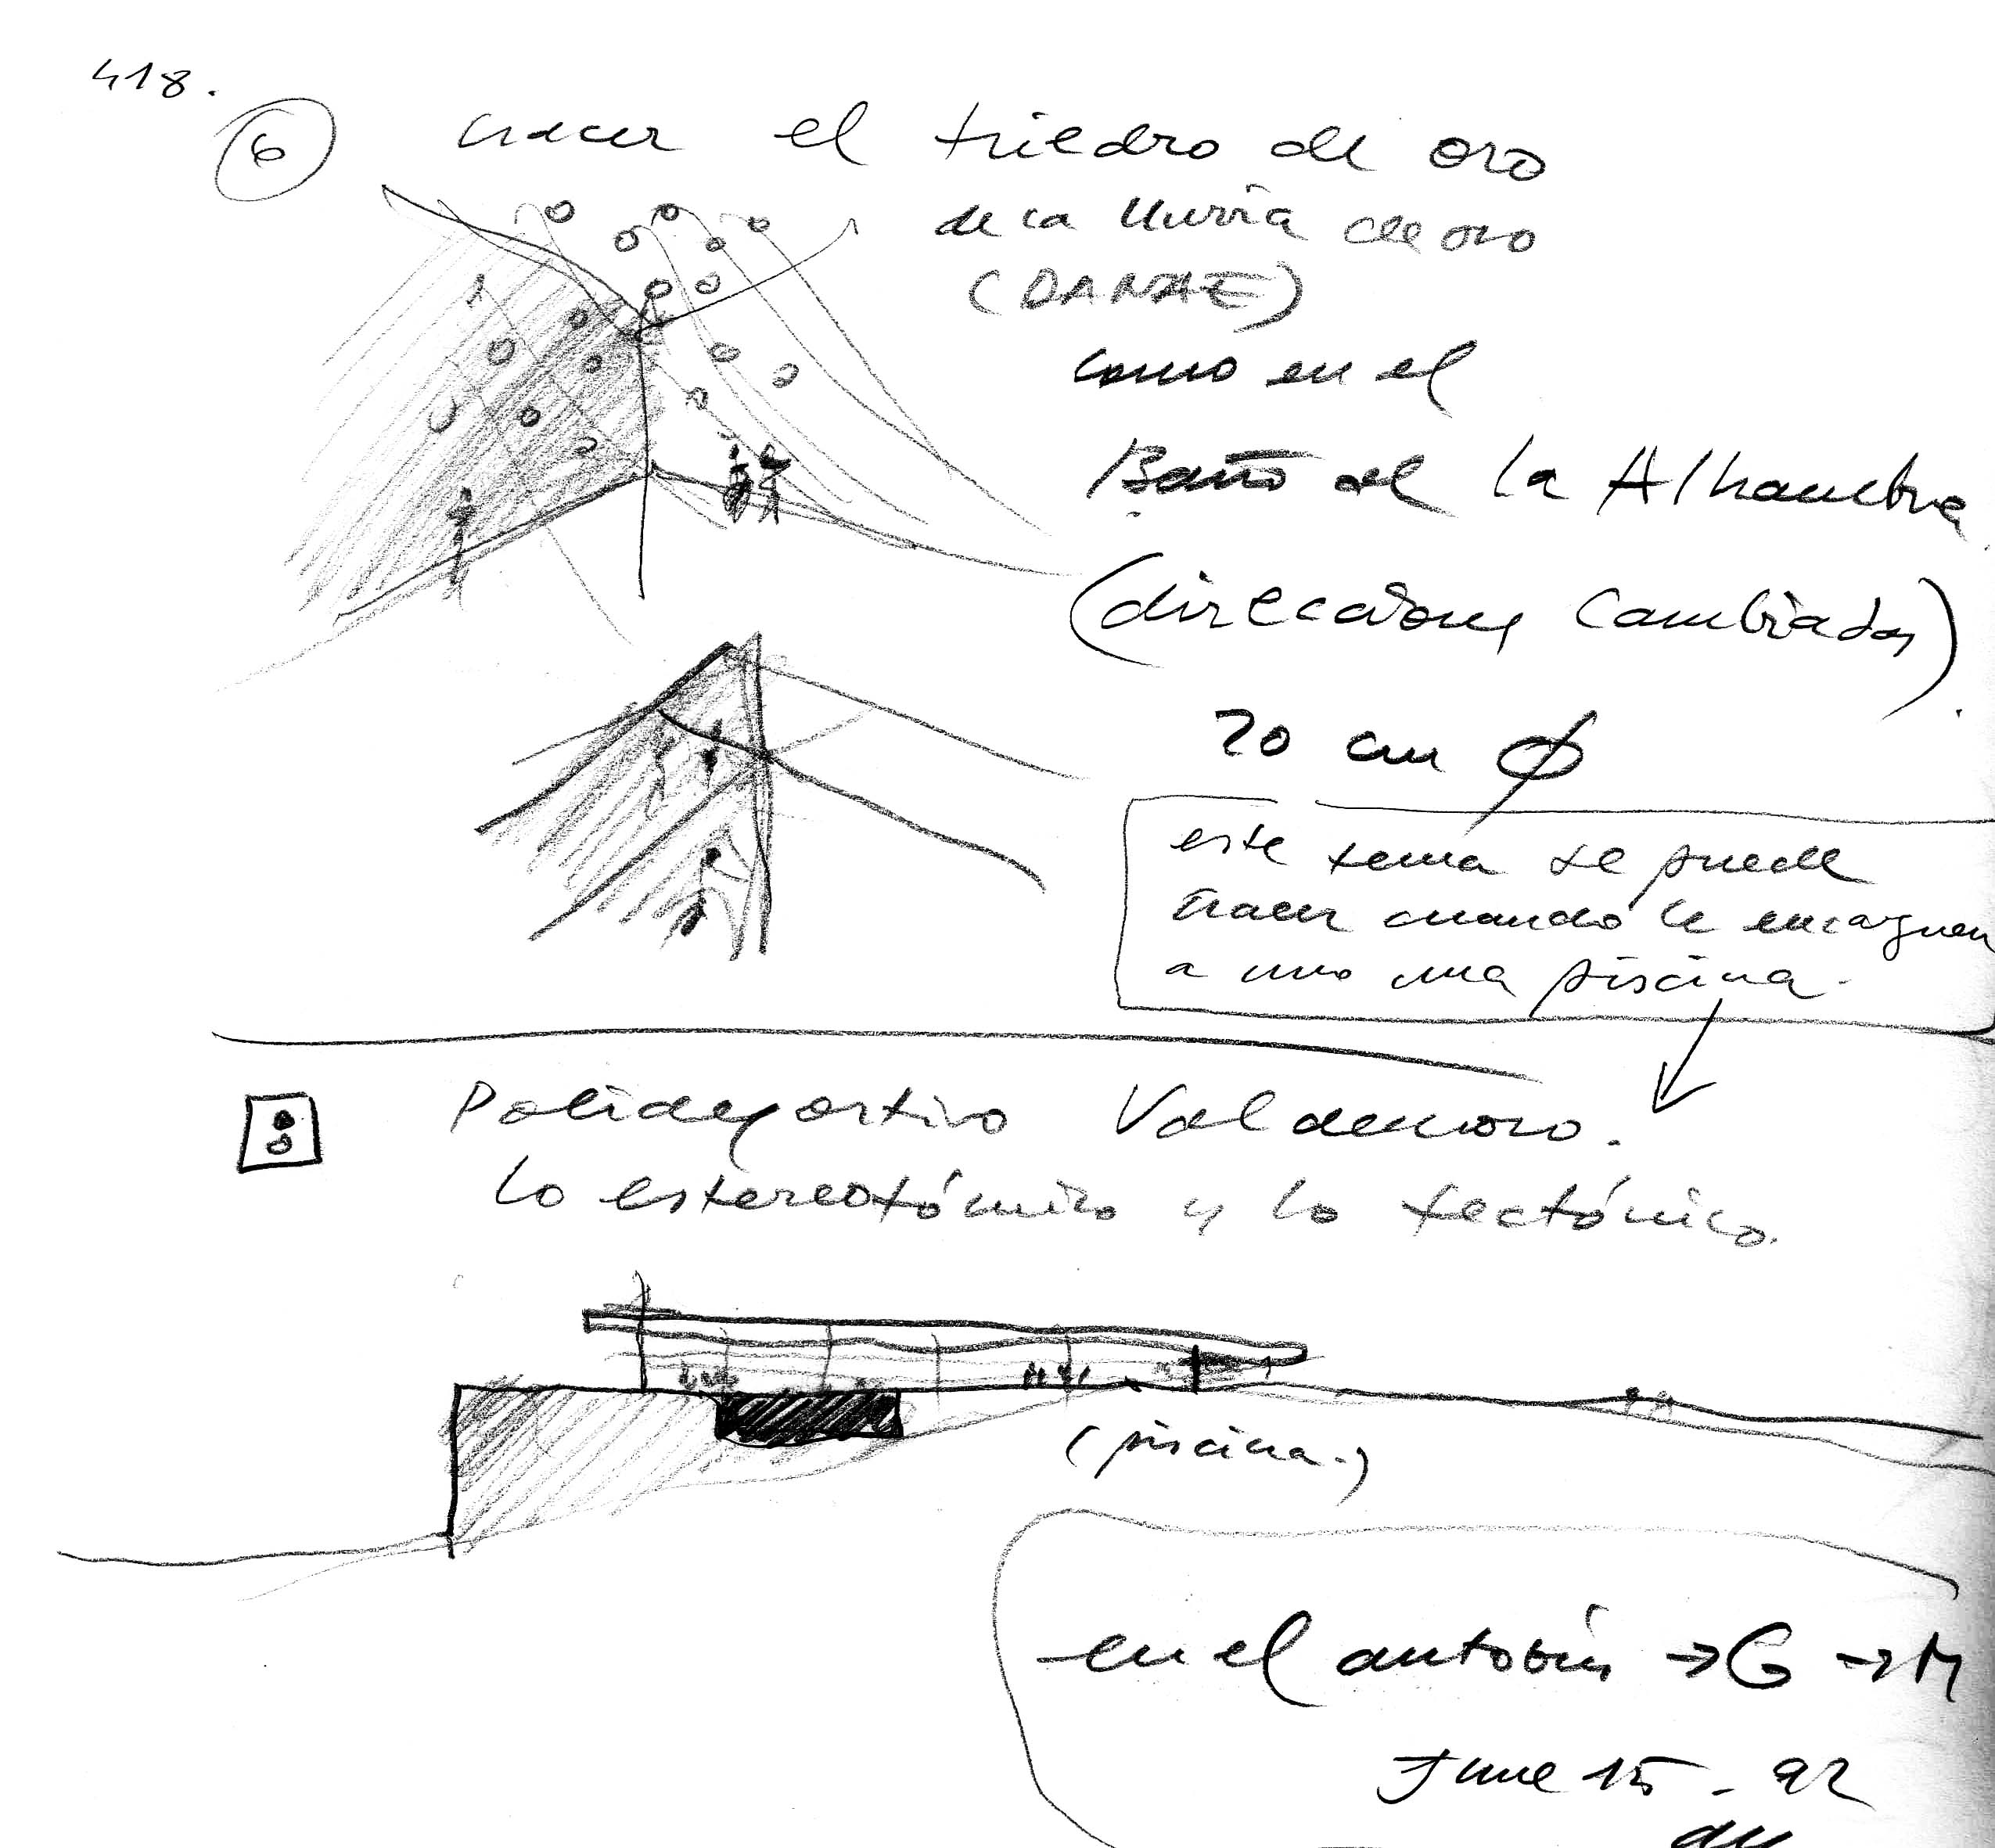 418.
6 hacer el triedro de oro
de la lluvia de oro
(DANAE)
como en el
Baño de la Alhambra
(direcciones cambiadas).
20 cm Ø
este tema se puede
hacer cuando le encarguen
a uno una piscina.
8 Polideportivo Valdemoro.
lo estereotómico y lo tectónico.
(piscina.)
en el autobús →G →M
June 15-92